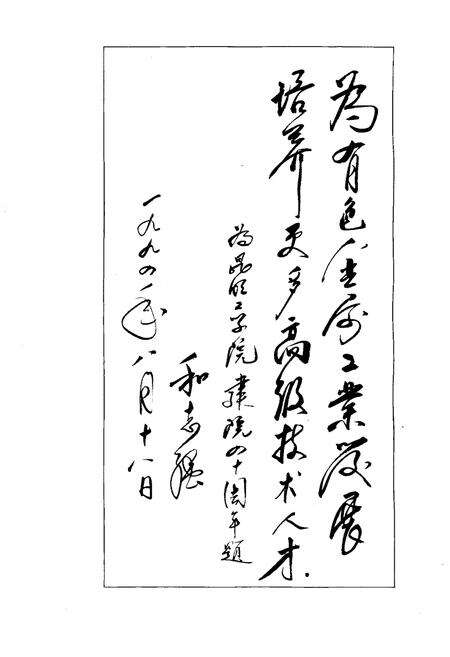 為有色金属工业发展
培养更多高级技术人才.
为昆明工学院建院四十周年题
和志强
一九九四年八月十八日